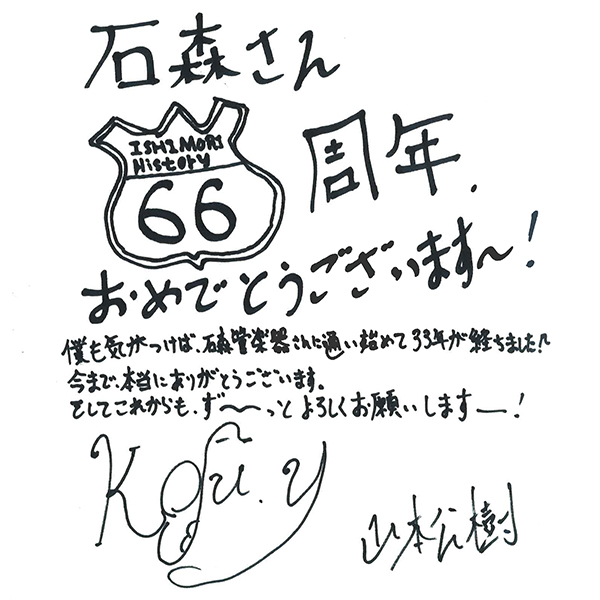 石森さん
ISHIMORI
History
66
周年.
おめでとうございます〜!
僕も気がつけば、石森管楽器さんに通い始めて33年が経ちました!?
今まで、本当にありがとうございます。
そしてこれからも、ず〜〜っとよろしくお願いしますー!
山本公樹